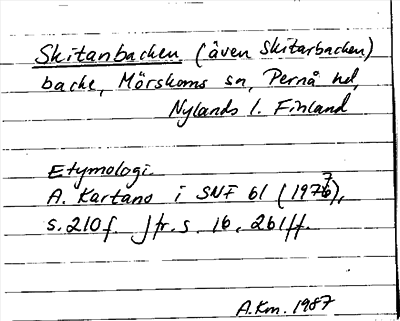 Skitanbacken (även Skitarbacken)
backe, Mörskoms sn, Pernå hd,
Nylands l. Finland
Etymologi.
A. Kartano i SNF 61 (1977),
s. 210 f. Jfr. s. 16, 261 ff.
A.Km. 1987